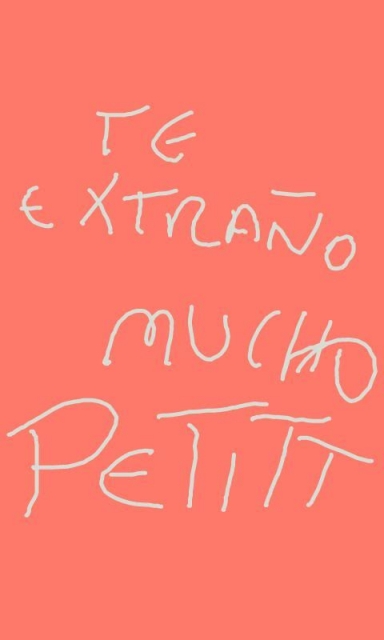 TE
EXTRAÑO
MUCHO
PETITT